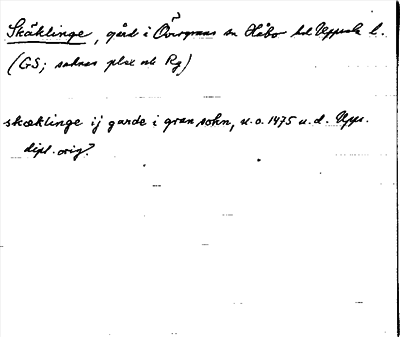 Skäklinge, gård i Övergrans sn Håbo hd Uppsala l.
(GS; saknas plac och Rg)
skæklinge ij garde i gran sokn, u.o. 1475 u.d. Upps.
dipl. orig?